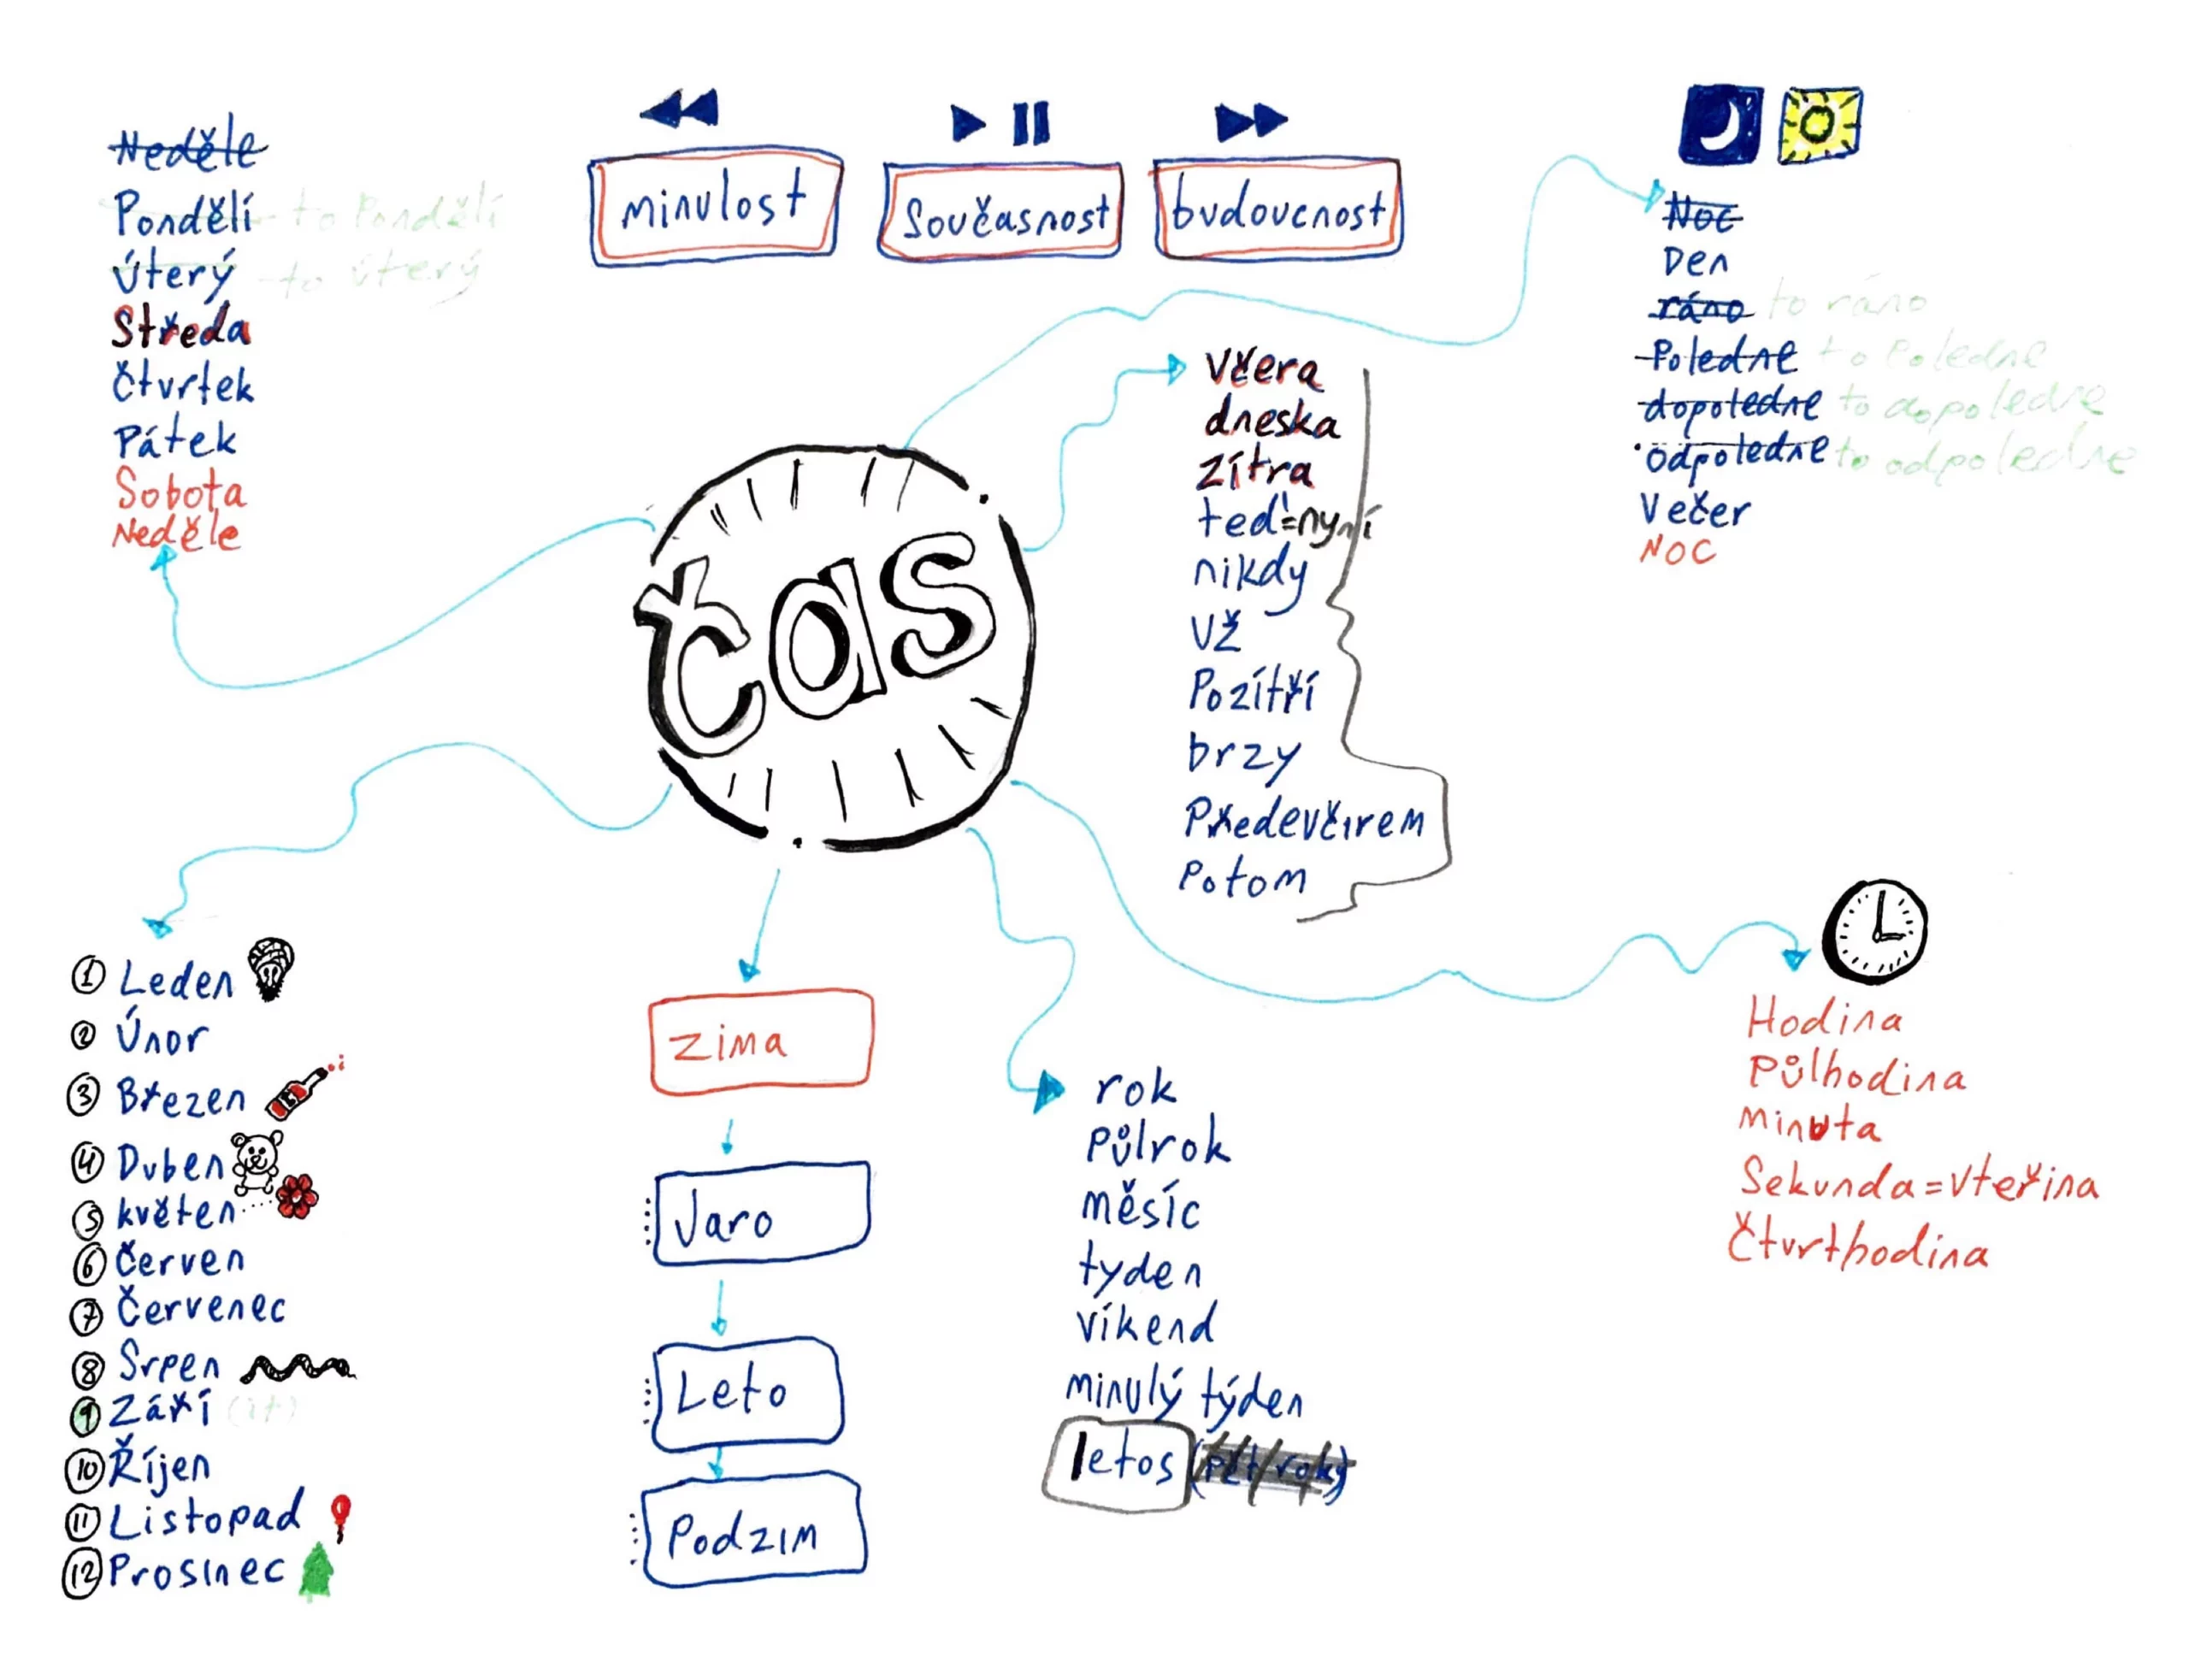 Neděle
Pondělí to Pondělí
Úterý to Úterý
Středa
Čtvrtek
Pátek
Sobota
Neděle
minulost
Současnost
budoucnost
Noc
Den
ráno to ráno
Poledne to Poledne
dopoledne to dopoledne
odpoledne to odpoledne
Večer
NOC
Včera
dneska
Zítra
teď=nyní
nikdy
Už
Pozítří
brzy
Předevčírem
Potom
čas
1 Leden
2 Únor
3 Březen
4 Duben
5 květen
6 Červen
7 Červenec
8 Srpen
9 Září (it)
10 Říjen
11 Listopad
12 Prosinec
zima
Jaro
Leto
Podzim
rok
Půlrok
měsíc
tyden
víkend
minulý týden
letos
Hodina
Půlhodina
minuta
Sekunda=vteřina
Čtvrthodina